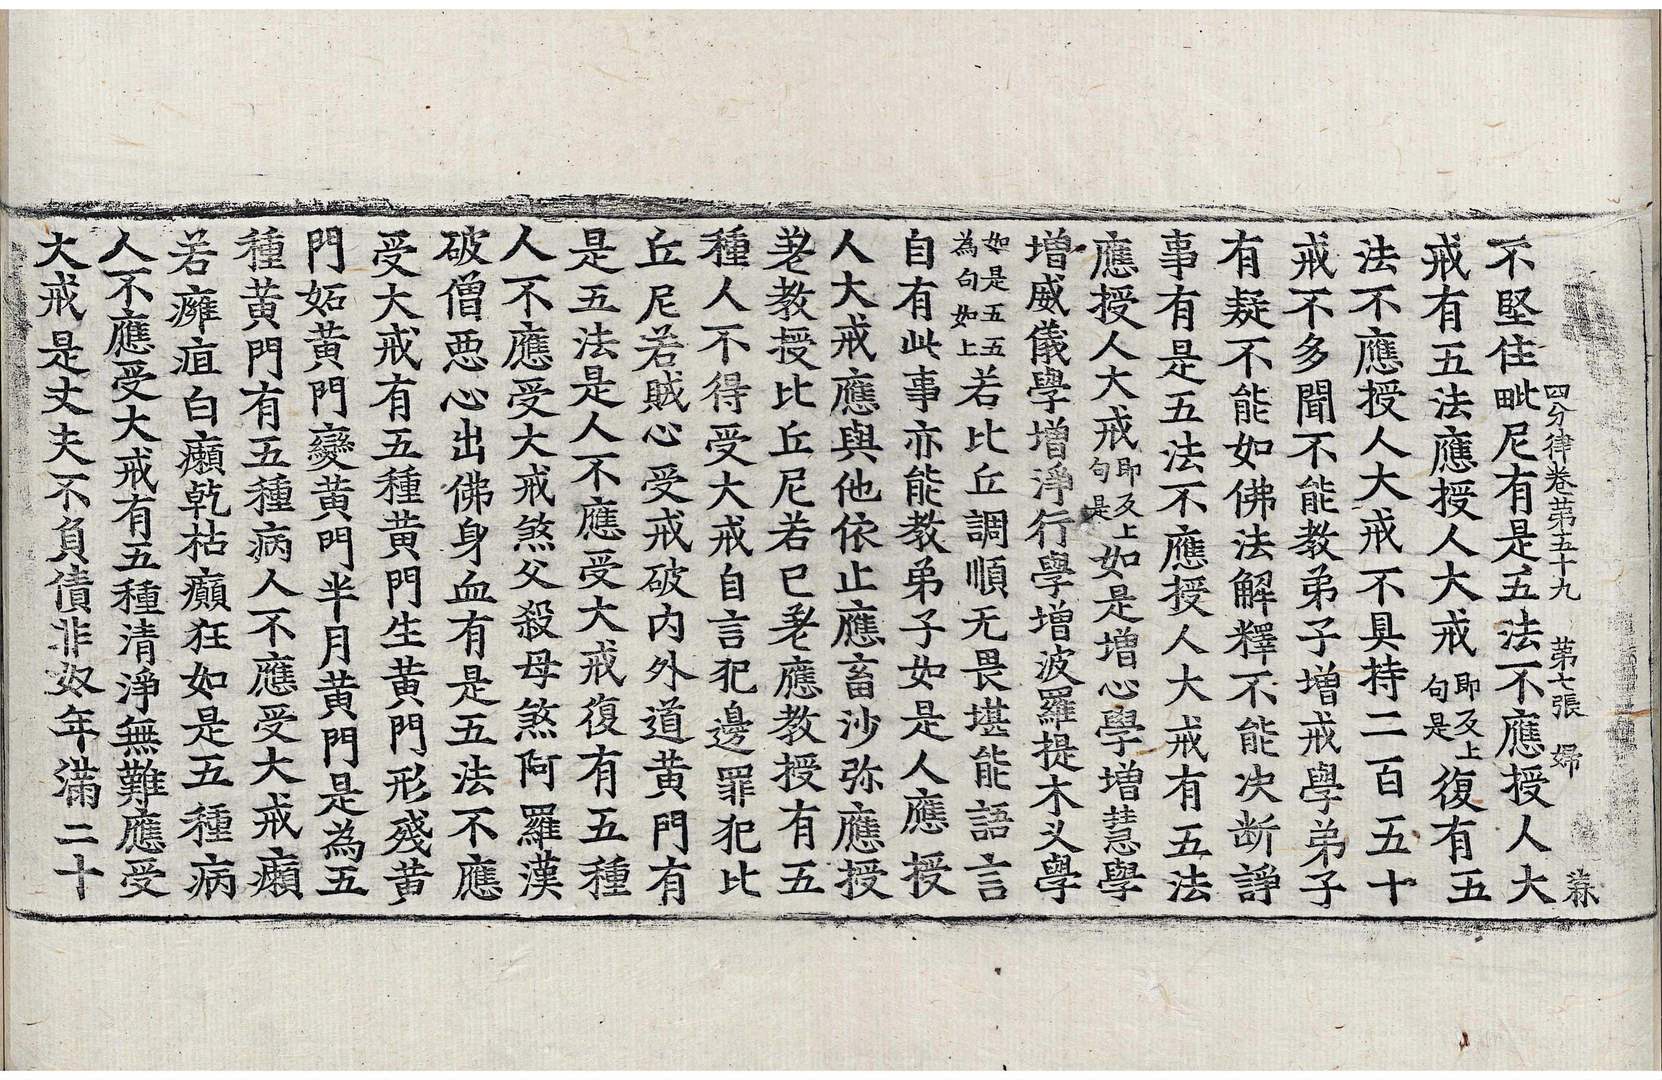 四分律卷第五十九 第七張 婦
不堅住毗尼有是五法不應授人大
戒有五法應授人大戒即反上句是復有五
法不應授人大戒不具持二百五十
戒不多聞不能教弟子增戒學弟子
有疑不能如佛法解釋不能決断諍
事有是五法不應授人大戒有五法
應授人大戒即反上句是如是增心學增慧學
增威儀學增淨行學增波羅提木叉學
如是五五為句如上若比丘調順无畏堪能語言
自有此事亦能教弟子如是人應授
人大戒應與他依止應畜沙弥應授
㝹教授比丘尼若已㝹應教授有五
種人不得受大戒自言犯邊罪犯比
丘尼若賊心受戒破内外道黃門有
是五法是人不應受大戒復有五種
人不應受大戒煞父殺母煞阿羅漢
破僧惡心出佛身血有是五法不應
受大戒有五種黃門生黃門形殘黃
門妬黃門變黃門半月黃門是為五
種黃門有五種病人不應受大戒癩
若癰疽白癩乾枯癲狂如是五種病
人不應受大戒有五種清淨無難應受
大戒是丈夫不負債非奴年滿二十